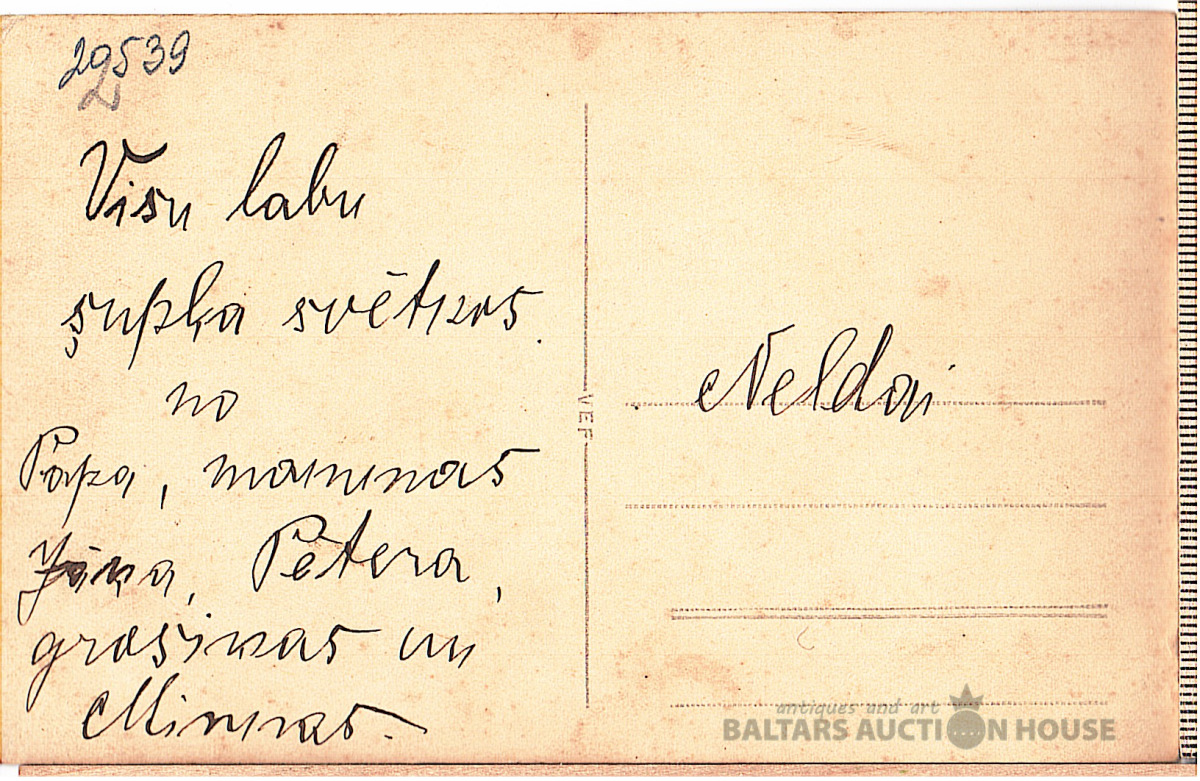 29539
Visu labu
šupļa svētkos.
no
Papa, mammas
Jāņa, Pētera,
grošiņas un
Minnas.
Neldai
VEF
antiques and art
BALTARS AUCTION HOUSE